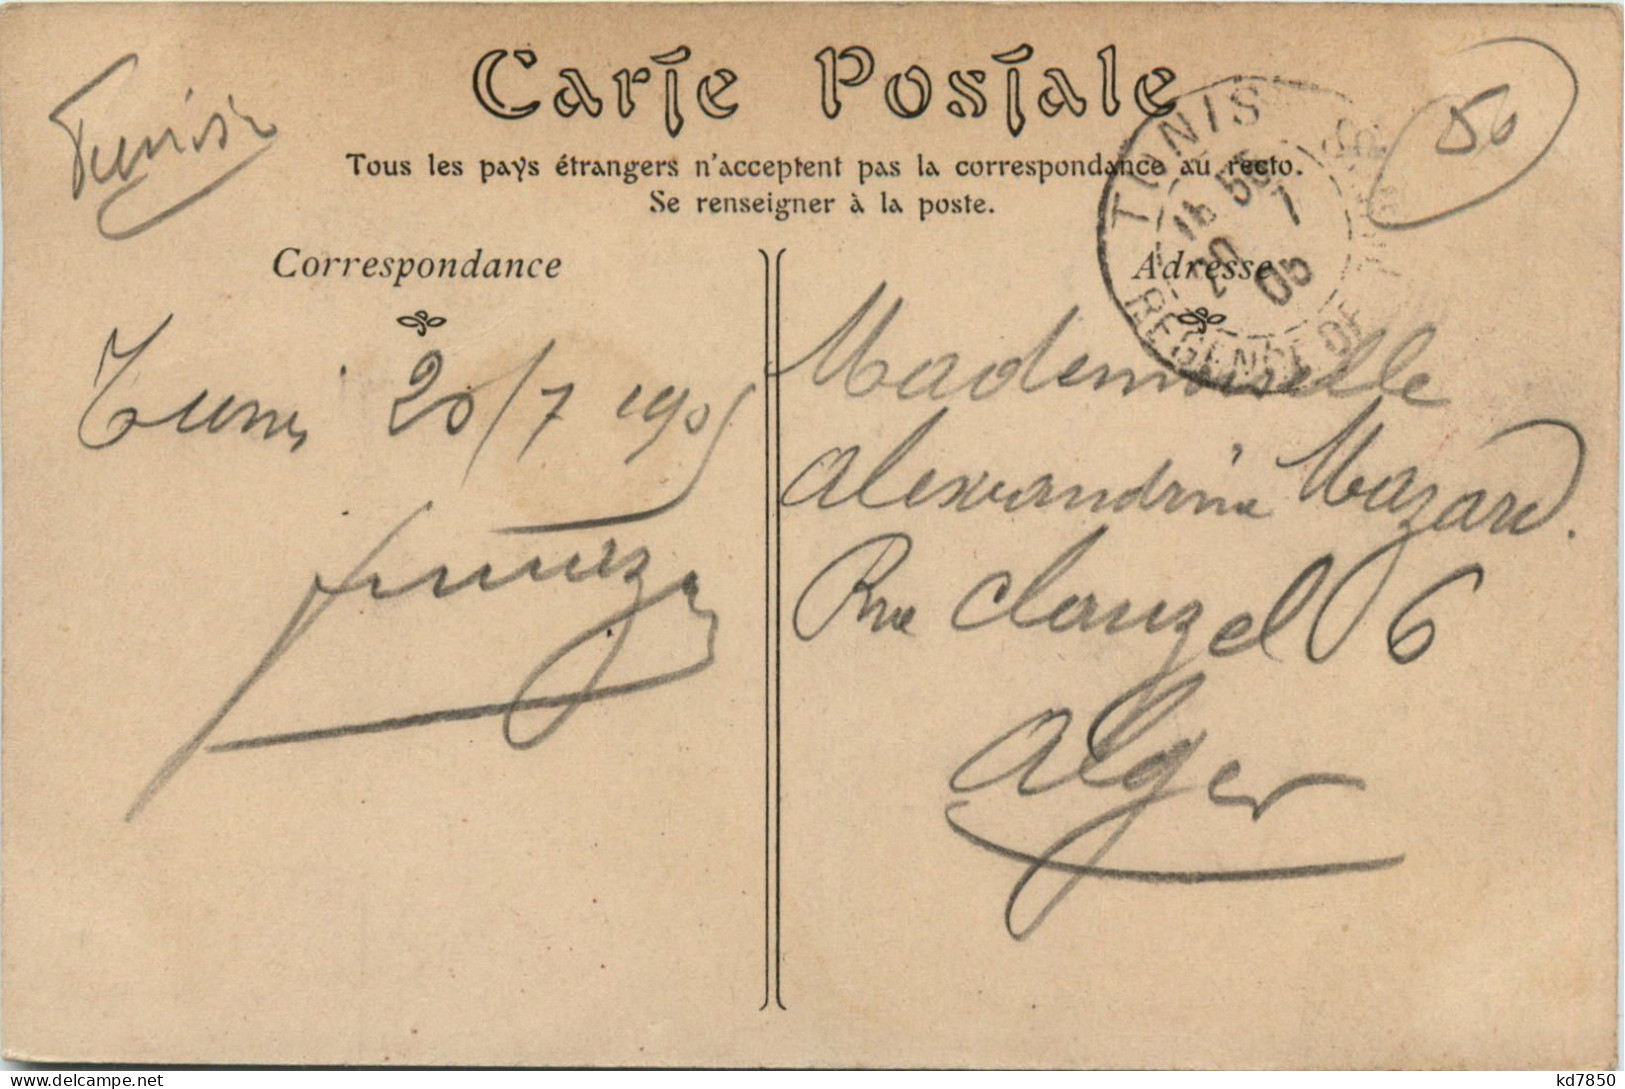 Tunisi
Carte Postale
50
Tous les pays étrangers n'acceptent pas la correspondance au recto.
Se renseigner à la poste.
TUNIS
16 55
20 7
05
REGENCE DE TUNIS
Correspondance
Adresse
Tunis 20/7 1905
Mademoiselle
Alexandrine Mazard.
Rue Clauzel 6
Alger
kd7850